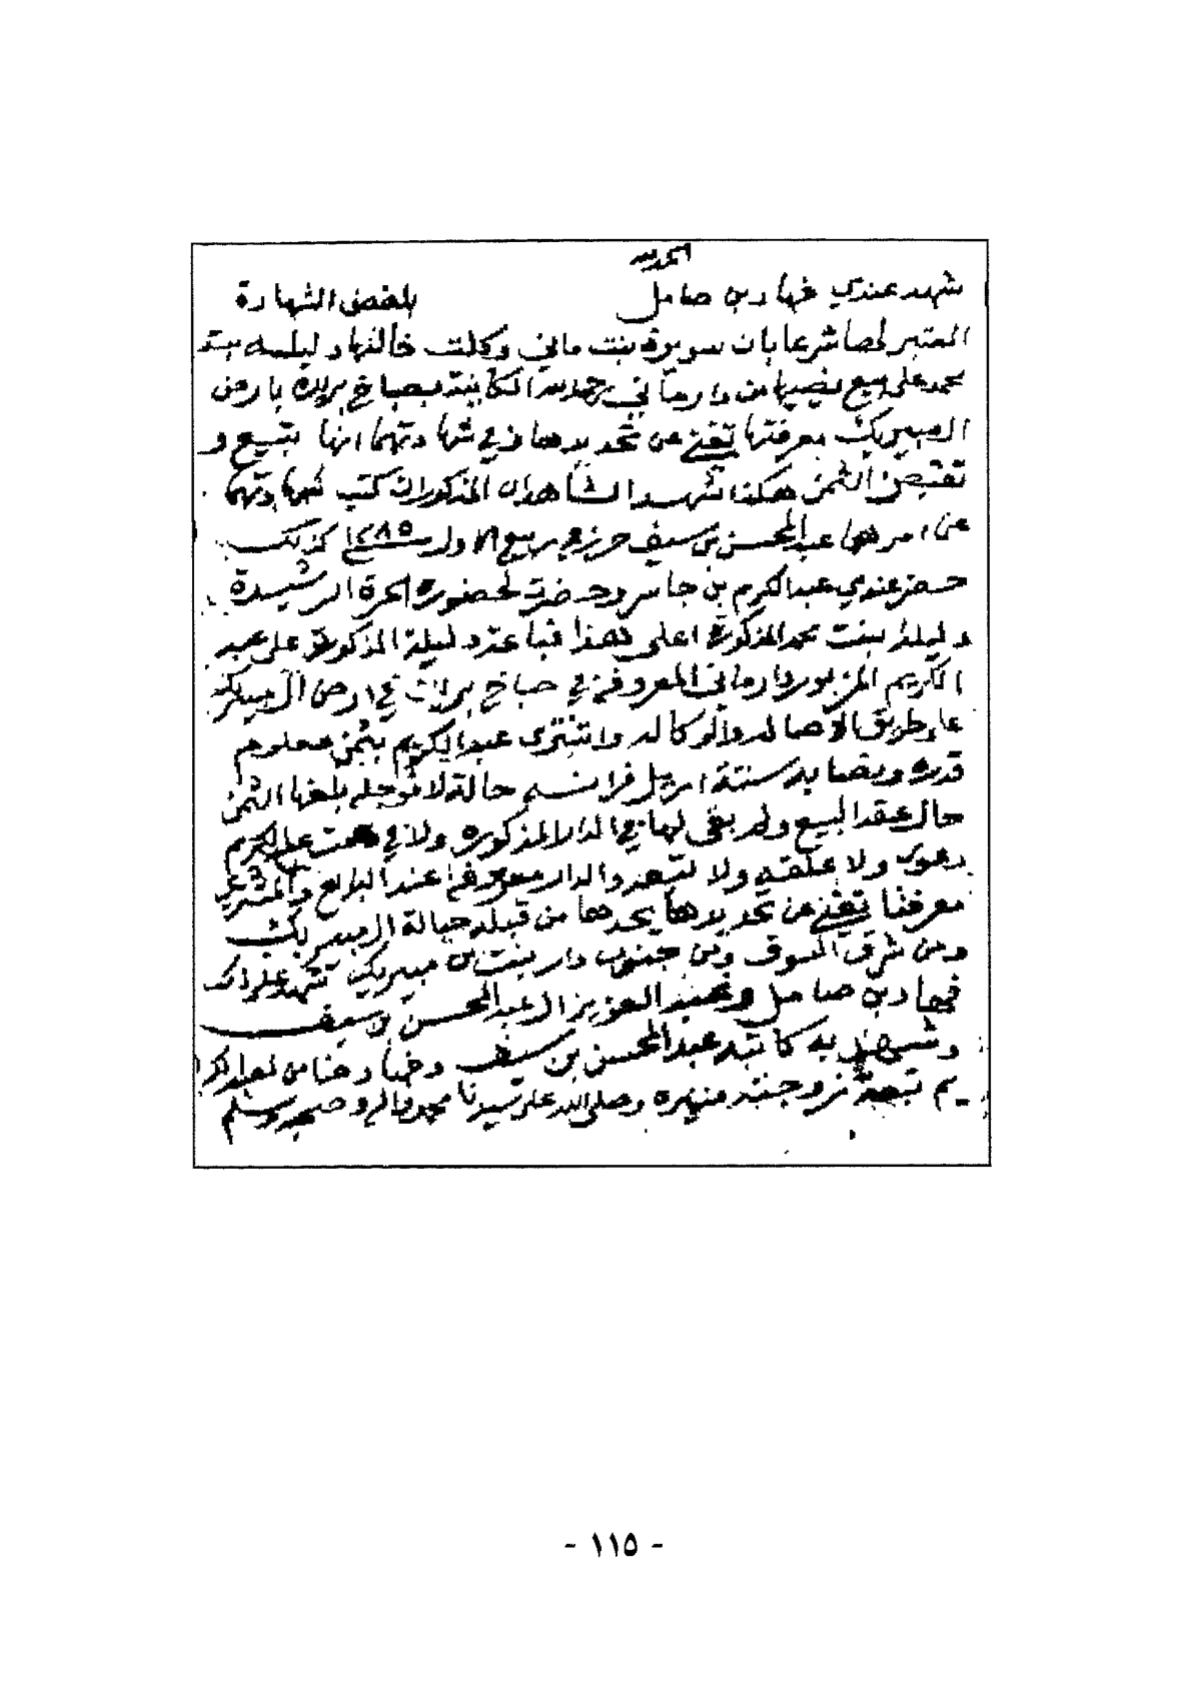 الحمد لله
شهد عندي فهاد بن صامل بلفض الشهادة
المعتبر لها شرعا بان سويرة بنت ماني وكلت خالتها دليله بنت
محمد على بيع نصيبها من دار ماني رحمه الله الكاينة بصباخ بريدة بارض
المبيريك معرفتها تغني عن تحديدها في شهادتهما انها تبيع و
تقبض الثمن هكذا شهدا الشاهدان المذكوران كتب شهادتهما
عن امرهما عبدالمحسن بن سيف حرر في ربيع الاول سنة ١٢٨٥ كذلك
حضر عندي عبدالكريم بن جاسر وحضرت لحضوره الحرة الرشيدة
دليلة بنت محمد المذكورة اعلى هذا فباعت دليلة المذكورة على عبد
الكريم المزبور دار ماني المعروفة في صباخ بريدة في ارض المبيريك
على طريق الاصاله والوكاله واشترى عبدالكريم بثمن معلوم
قدره ونصابه ستة اريل فرانسه حالة لا مؤجله بلغها الثمن
حال عقد البيع ولم بقى لها في الدار المذكوره ولا في عبدالكريم
دعوى ولا علقه ولا تبعه والدار معروفة عند البايع والمشتري
معرفتا تغني عن تحديدها يحدها من قبله حيالة المبيريك
ومن شرق السوق ومن جنوب دار بنت بن مبيريك شهد على ذلك
فهاد بن صامل وعبد العزيز ال عبدالمحسن بن سيف
وشهد به كاتبه عبدالمحسن بن سيف وضمن لعبد الكر
يم تبعة زوجته منيره وصلى الله على سيدنا محمد واله وصحبه وسلم
- ١١٥ -